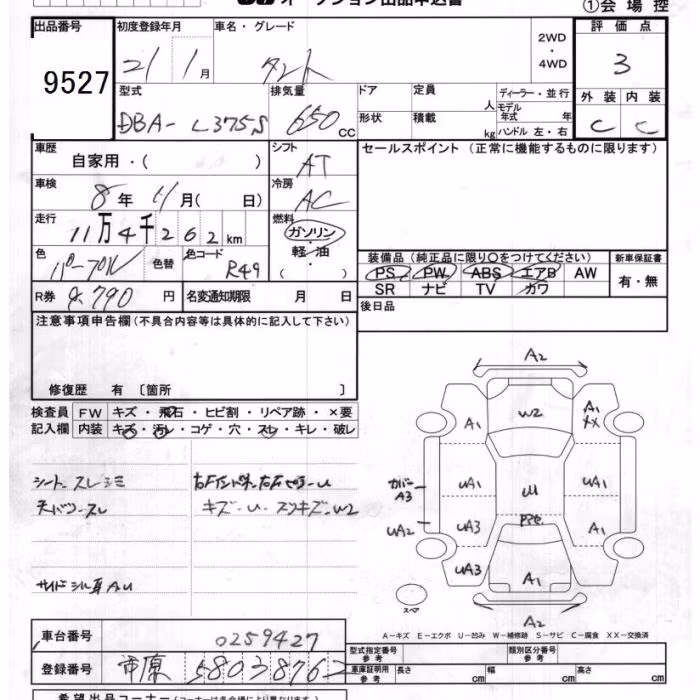 オークション出品申込書
①会場控
出品番号 初度登録年月 車名・グレード 2WD・4WD 評価点
9527 21 1月 タント 3
型式 排気量 ドア 定員 人 ディーラー・並行 外装 内装
モデル年式 年
DBA-L375S 650 CC 形状 積載 kg ハンドル 左・右 C C
車歴 自家用・( ) シフト AT セールスポイント(正常に機能するものに限ります)
車検 8年 11月( 日) 冷房 AC
走行 11万4千262km 燃料 ガソリン・軽油 ( ・ )
色 パープル 色替 色コード R49 装備品(純正品に限り○をつけてください) 新車保証書
PS PW ABS エアB AW 有・無
R券 8,790円 名変通知期限 月 日 SR ナビ TV カワ
後日品
注意事項申告欄(不具合内容等は具体的に記入して下さい)
修復歴 有 [箇所 ]
検査員 FW キズ・飛石・ヒビ割・リペア跡・×要
記入欄 内装 キズ・汚れ・コゲ・穴・スレ・キレ・破レ
シート スレシミ
キズ-U スリキズ-W2
サイドシル左AU
A2
W2
A1
A1
XX
カバーA3
UA1
U
UA1
UA2
UA3
A1
UA3
A1
スペア
A2
A-キズ E-エクボ U-凹み W-補修跡 S-サビ C-腐食 XX-交換済
車台番号 0259427 型式指定番号 参考 類別区分番号 参考
登録番号 市原 580 3 8762 車庫証明用 参考 長さ cm 幅 cm 高さ cm
希望出品コーナー(コーナーは各会場により異なります)